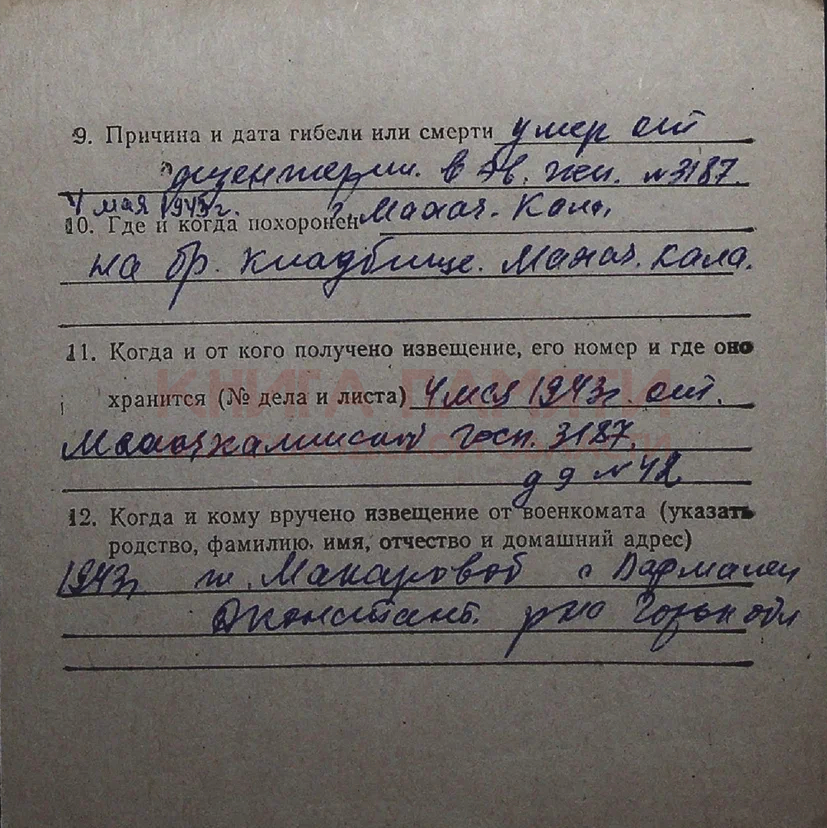 9. Причина и дата гибели или смерти умер от
дизентерии. в Эв. госп. №3187.
4 мая 1943 г.
10. Где и когда похоронен г. Махач. Кала,
на бр. кладбище. Махач. кала.
11. Когда и от кого получено извещение, его номер и где оно
хранится (№ дела и листа) 4 мая 1943 г. от.
Махачкалинской госп. 3187.
д 9 № 42
12. Когда и кому вручено извещение от военкомата (указать
родство, фамилию, имя, отчество и домашний адрес)
1943 г. Макаровой с
Дконстант. рно Горьк обл
КНИГА ПАМЯТИ